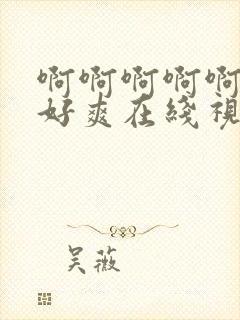 啊啊啊啊啊
好爽在綫視
吴薇